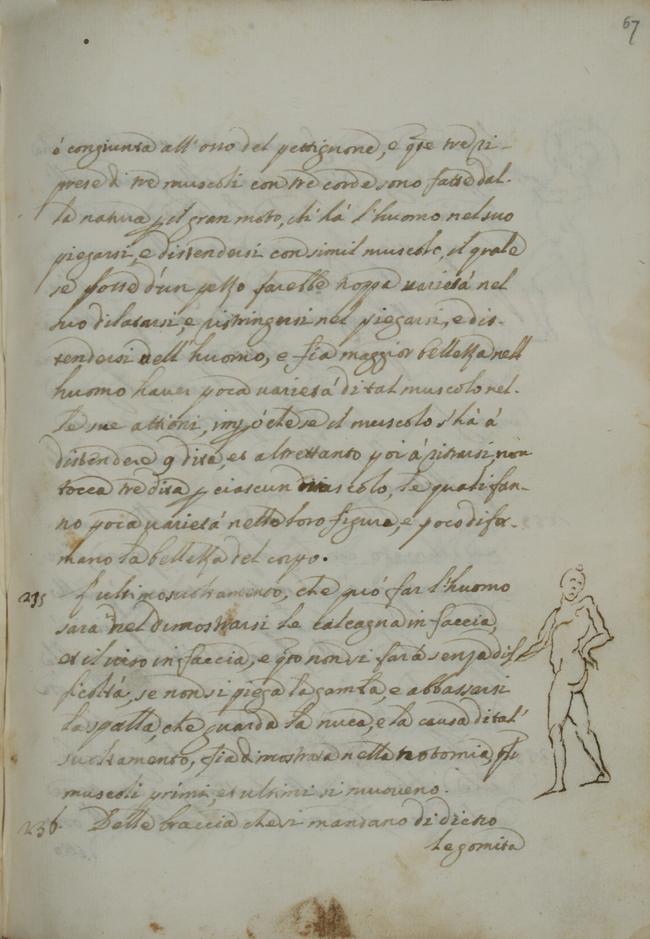 67
è congiunta all'osso del pettignone, e qste tre ri-
prese di tre muscoli con tre corde sono fatte dal-
la natura p il gran moto, ch'hà l'huomo nel suo
piegarsi, e distendersi con simil muscolo, il quale
se fosse d'un pezzo farebbe troppa varietà nel
suo dilatarsi, e ristringersi nel piegarsi, e dis-
tendersi dell'huomo, e fia maggior bellezza nell'
huomo haver poca varietà di tal muscolo nel-
le sue attioni, impo che se il muscolo s'hà à
distendere 9 dita, et altrettanto poi à ritrarsi non
tocca tre dita p ciascun muscolo, le quali fan-
no poca varietà nella loro figura, e poco difor-
mano la bellezza del corpo.
235 L'ultimo svoltamento, che può far l'huomo
sarà nel dimostrarsi le calcagna in faccia,
et il viso in faccia, e qto non si farà senza dif-
ficoltà, se non si piega la gamba, e abbassarsi
la spalla, che guarda la nuca, e la causa di tal'
svoltamento, fia dimostrata nella notomia, qli
muscoli primi, et ultimi si muoveno.
236. Delle braccia che si mandano di dietro
le gomita